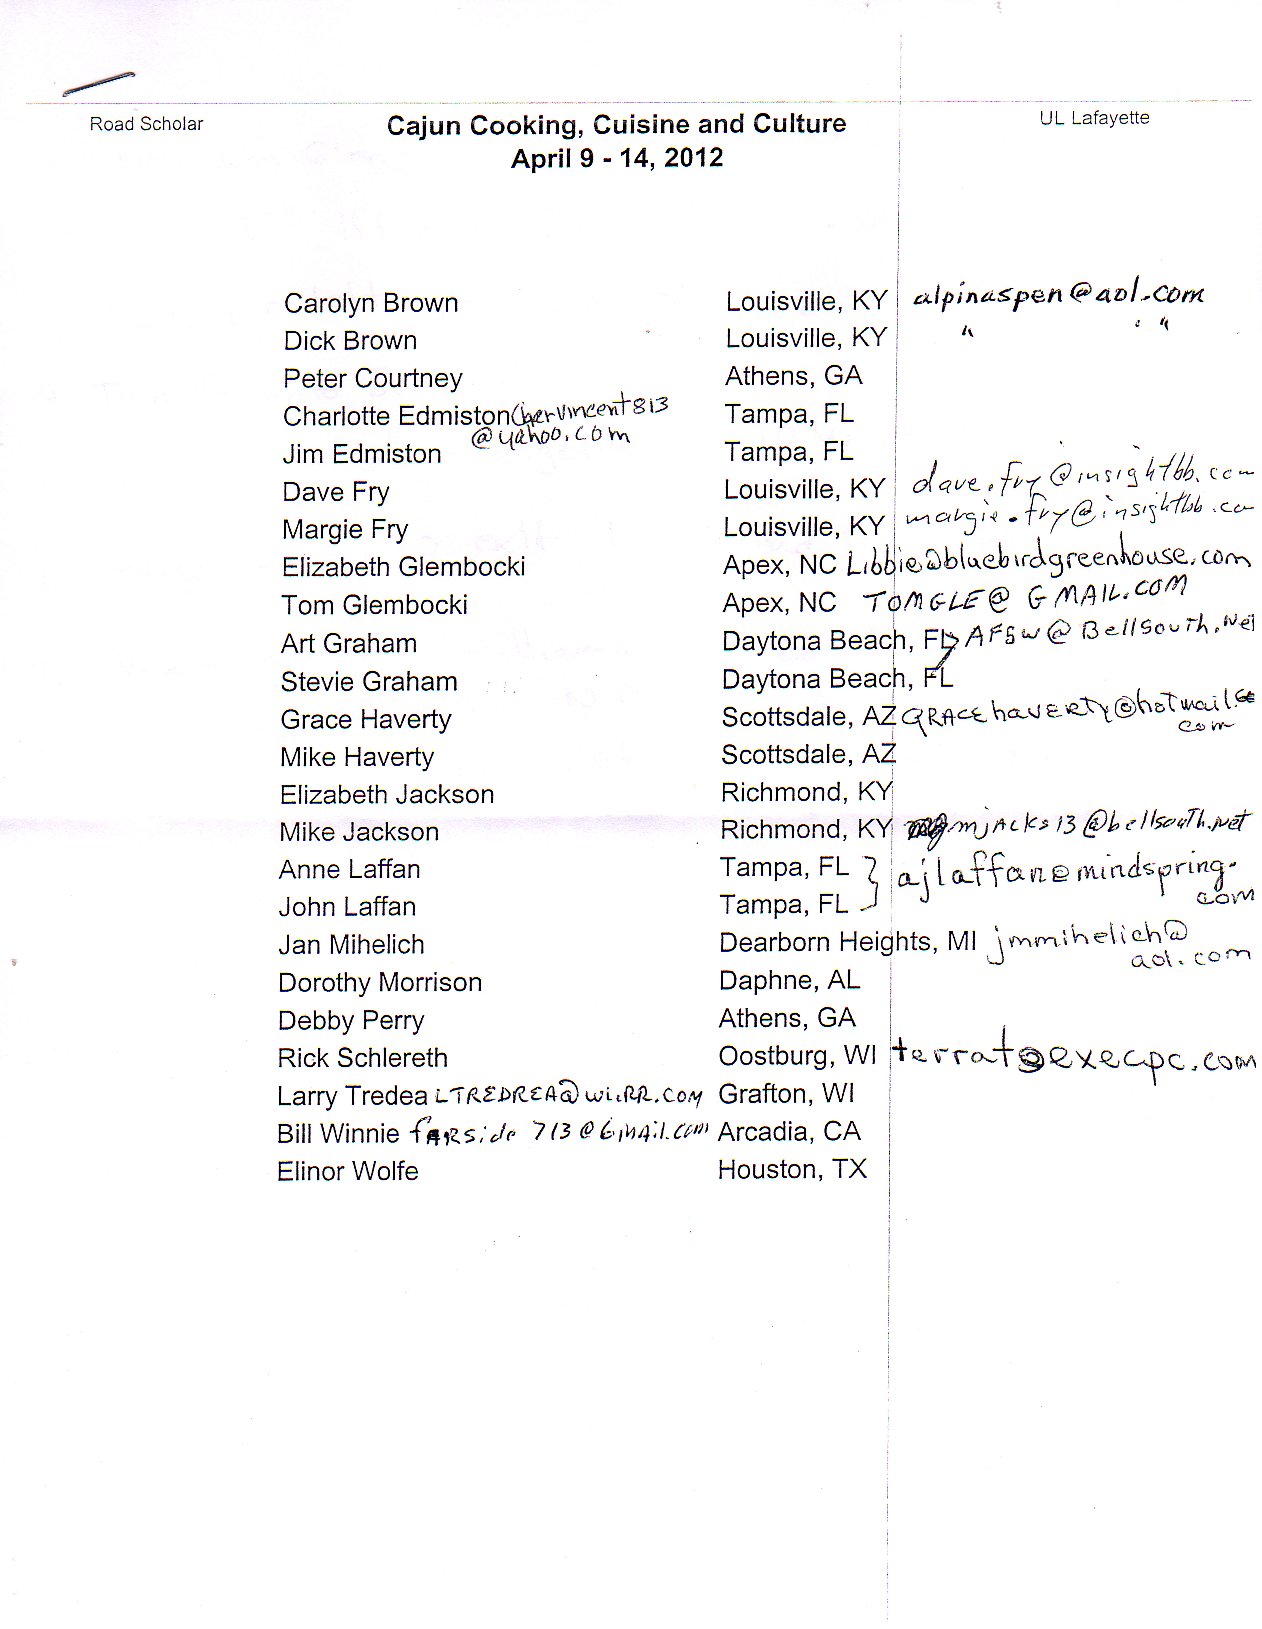 Road Scholar Cajun Cooking, Cuisine and Culture UL Lafayette
April 9 - 14, 2012
Carolyn Brown Louisville, KY alpinaspen@aol.com
Dick Brown Louisville, KY " "
Peter Courtney Athens, GA
Charlotte Edmiston Tampa, FL
@yahoo.com
Jim Edmiston Tampa, FL
Dave Fry Louisville, KY dave.fry@insightbb.com
Margie Fry Louisville, KY margie.fry@insightbb.com
Elizabeth Glembocki Apex, NC Libbie@bluebirdgreenhouse.com
Tom Glembocki Apex, NC TOMGLE@GMAIL.COM
Art Graham Daytona Beach, FL AFGW@BellSouth.net
Stevie Graham Daytona Beach, FL
Grace Haverty Scottsdale, AZ GRACEhavERTy@hotmail.
com
Mike Haverty Scottsdale, AZ
Elizabeth Jackson Richmond, KY
Mike Jackson Richmond, KY mjacks13@bellsouth.net
Anne Laffan Tampa, FL ajlaffan@mindspring.
com
John Laffan Tampa, FL
Jan Mihelich Dearborn Heights, MI jmmihelich@
aol.com
Dorothy Morrison Daphne, AL
Debby Perry Athens, GA
Rick Schlereth Oostburg, WI terrat@execpc.com
Larry Tredea LTREDREA@wi.RR.COM Grafton, WI
Bill Winnie fARside713@Gmail.com Arcadia, CA
Elinor Wolfe Houston, TX